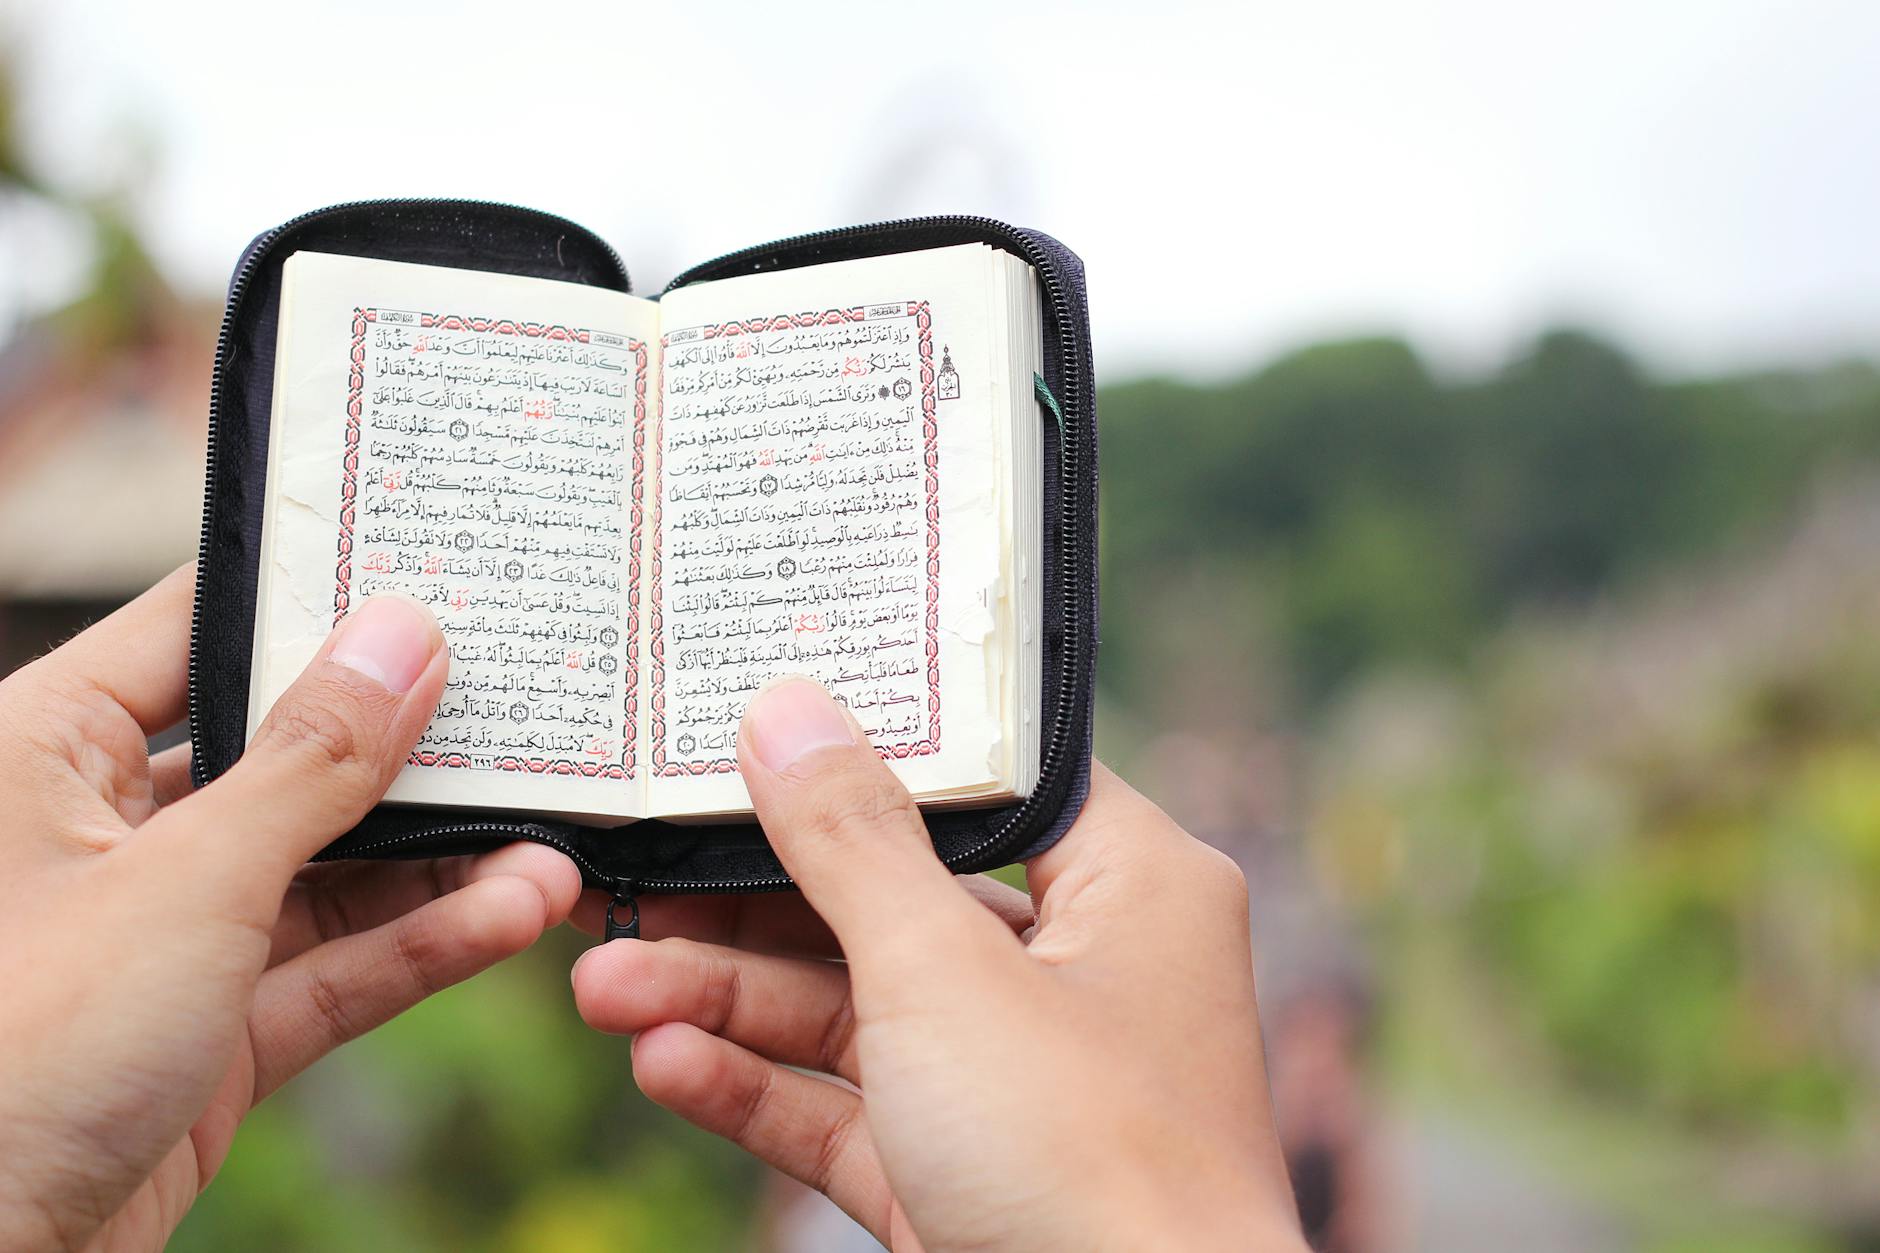 سُورَةُ الكَهْفِ
وَإِذِ ٱعْتَزَلْتُمُوهُمْ وَمَا يَعْبُدُونَ إِلَّا ٱللَّهَ فَأْوُۥٓا۟ إِلَى ٱلْكَهْفِ
يَنشُرْ لَكُمْ رَبُّكُم مِّن رَّحْمَتِهِۦ وَيُهَيِّئْ لَكُم مِّنْ أَمْرِكُم مِّرْفَقًا
١٦ ۞ وَتَرَى ٱلشَّمْسَ إِذَا طَلَعَت تَّزَٰوَرُ عَن كَهْفِهِمْ ذَاتَ
ٱلْيَمِينِ وَإِذَا غَرَبَت تَّقْرِضُهُمْ ذَاتَ ٱلشِّمَالِ وَهُمْ فِى فَجْوَةٍ
مِّنْهُ ۚ ذَٰلِكَ مِنْ ءَايَٰتِ ٱللَّهِ ۗ مَن يَهْدِ ٱللَّهُ فَهُوَ ٱلْمُهْتَدِ ۖ وَمَن
يُضْلِلْ فَلَن تَجِدَ لَهُۥ وَلِيًّا مُّرْشِدًا ١٧ وَتَحْسَبُهُمْ أَيْقَاظًا
وَهُمْ رُقُودٌ ۚ وَنُقَلِّبُهُمْ ذَاتَ ٱلْيَمِينِ وَذَاتَ ٱلشِّمَالِ ۖ وَكَلْبُهُم
بَٰسِطٌ ذِرَاعَيْهِ بِٱلْوَصِيدِ ۚ لَوِ ٱطَّلَعْتَ عَلَيْهِمْ لَوَلَّيْتَ مِنْهُمْ
فِرَارًا وَلَمُلِئْتَ مِنْهُمْ رُعْبًا ١٨ وَكَذَٰلِكَ بَعَثْنَٰهُمْ
لِيَتَسَآءَلُوا۟ بَيْنَهُمْ ۚ قَالَ قَآئِلٌ مِّنْهُمْ كَمْ لَبِثْتُمْ ۖ قَالُوا۟ لَبِثْنَا
يَوْمًا أَوْ بَعْضَ يَوْمٍ ۚ قَالُوا۟ رَبُّكُمْ أَعْلَمُ بِمَا لَبِثْتُمْ فَٱبْعَثُوٓا۟
أَحَدَكُم بِوَرِقِكُمْ هَٰذِهِۦٓ إِلَى ٱلْمَدِينَةِ فَلْيَنظُرْ أَيُّهَآ أَزْكَىٰ
طَعَامًا فَلْيَأْتِكُم وَلَا يُشْعِرَنَّ
بِكُمْ أَحَدًا يَرْجُمُوكُمْ
أَبَدًا ٢٠
سُورَةُ الكَهْفِ
وَكَذَٰلِكَ أَعْثَرْنَا عَلَيْهِمْ لِيَعْلَمُوٓا۟ أَنَّ وَعْدَ ٱللَّهِ حَقٌّ وَأَنَّ
ٱلسَّاعَةَ لَا رَيْبَ فِيهَآ إِذْ يَتَنَٰزَعُونَ بَيْنَهُمْ أَمْرَهُمْ ۖ فَقَالُوا۟
ٱبْنُوا۟ عَلَيْهِم بُنْيَٰنًا ۖ رَّبُّهُمْ أَعْلَمُ بِهِمْ ۚ قَالَ ٱلَّذِينَ غَلَبُوا۟ عَلَىٰٓ
أَمْرِهِمْ لَنَتَّخِذَنَّ عَلَيْهِم مَّسْجِدًا ٢١ سَيَقُولُونَ ثَلَٰثَةٌ
رَّابِعُهُمْ كَلْبُهُمْ وَيَقُولُونَ خَمْسَةٌ سَادِسُهُمْ كَلْبُهُمْ رَجْمًۢا
بِٱلْغَيْبِ ۖ وَيَقُولُونَ سَبْعَةٌ وَثَامِنُهُمْ كَلْبُهُمْ ۚ قُل رَّبِّىٓ أَعْلَمُ
بِعِدَّتِهِم مَّا يَعْلَمُهُمْ إِلَّا قَلِيلٌ ۗ فَلَا تُمَارِ فِيهِمْ إِلَّا مِرَآءً ظَٰهِرًا
وَلَا تَسْتَفْتِ فِيهِم مِّنْهُمْ أَحَدًا ٢٢ وَلَا تَقُولَنَّ لِشَا۟ىْءٍ
إِنِّى فَاعِلٌ ذَٰلِكَ غَدًا ٢٣ إِلَّآ أَن يَشَآءَ ٱللَّهُ ۚ وَٱذْكُر رَّبَّكَ
إِذَا نَسِيتَ وَقُلْ عَسَىٰٓ أَن يَهْدِيَنِ رَبِّى لِأَقْرَبَ
٢٤ وَلَبِثُوا۟ فِى كَهْفِهِمْ ثَلَٰثَ مِا۟ئَةٍ سِنِينَ
٢٥ قُلِ ٱللَّهُ أَعْلَمُ بِمَا لَبِثُوا۟ ۖ لَهُۥ غَيْبُ
أَبْصِرْ بِهِۦ وَأَسْمِعْ ۚ مَا لَهُم مِّن دُونِ
فِى حُكْمِهِۦٓ أَحَدًا ٢٦ وَٱتْلُ مَآ أُوحِىَ
رَبِّكَ ۖ لَا مُبَدِّلَ لِكَلِمَٰتِهِۦ وَلَن تَجِدَ مِن
٢٩٦